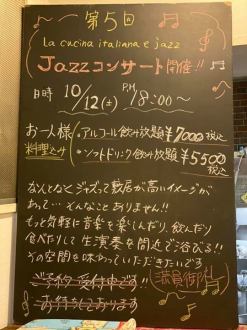 第5回
La cucina italiana e jazz
Jazzコンサート開催!!
日時 10/12(土) P.M. 18:00〜
お一人様 ・アルコール飲み放題 ¥7000税込
料理込み ・ソフトドリンク飲み放題 ¥5500税込
なんとなくジャズって敷居が高いイメージが
あって…そんなことありません!!
もっと気軽に音楽を楽しんだり、飲んだり
食べたりして生演奏を間近で浴びる!!
その空間を味わっていただきたいです
ご予約受付中です!!
お待ちしております
満員御礼